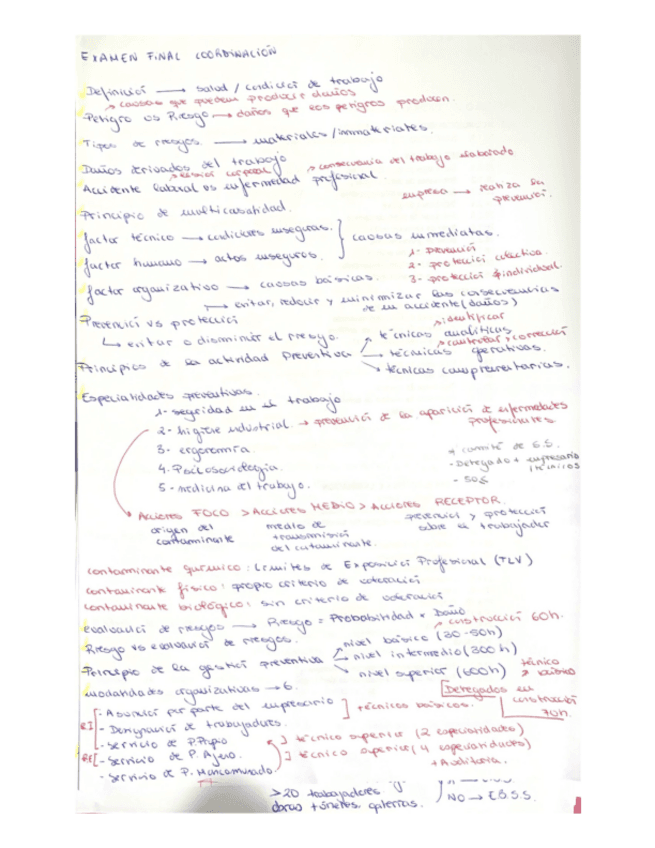 EXAMEN FINAL COORDINACIÓN
Definició → salud / condició de trabajo
causas que puedan producir daños
Peligro vs Riesgo → daños que los peligros producen.
Tipos de riesgos. → materiales/inmateriales.
Daños derivados del trabajo
lesión corporal → consecuencia del trabajo elaborado
Accidente laboral vs enfermedad profesional.
empresa → realiza la prevenció.
Principio de multicausalidad.
factor técnico → condiciones inseguras.
factor humano → actos inseguros. } causas inmediatas.
factor organizativo → causas básicas.
1- Prevenció
2- protecció colectiva.
3- protecció individual.
→ evitar, reducir y minimizar las consecuencias de un accidente (daños)
Prevenció vs protecció
↳ evitar o disminuir el riesgo.
Principios de la actividad preventiva
identificar
técnicas analíticas
controlar y correcció
→ técnicas operativas.
técnicas complementarias.
Especialidades preventivas.
1- seguridad en el trabajo
2- higiene industrial. → prevenció de la aparició de enfermedades profesionales.
3- ergonomía.
4. Psicosociología.
5- medicina del trabajo.
+ comité de S.S.
- Delegado + empresario
- 50%
Acciones FOCO > Acciones MEDIO > Acciones RECEPTOR.
origen del contaminante
medio de transmisió del contaminante.
prevenció y protecció sobre el trabajador
contaminante químico: Límites de Exposició Profesional (TLV)
contaminante físico: propio criterio de valoració
contaminante biológico: sin criterio de valoració
evaluació de riesgos → Riesgo = Probabilidad x Daño
construcció 60h.
Riesgo vs evaluació de riesgos.
Principio de la gestió preventiva
nivel básico (30-50h)
→ nivel intermedio (300h)
nivel superior (600h)
técnico básico
modalidades organizativas → 6.
Delegados en construcció 70h.
- Asunció por parte del empresario ] técnicos básicos.
RI - Designació de trabajadores.
- Servicio de P. Propio ] técnico superior (2 especialidades)
RE - Servicio de P. Ajeno. ] técnico superior (4 especialidades)
+ Auditoria.
- servicio de P. Mancomunado.
>20 trabajadores "y"
túneles, galerías.
NO → E.B.S.S.